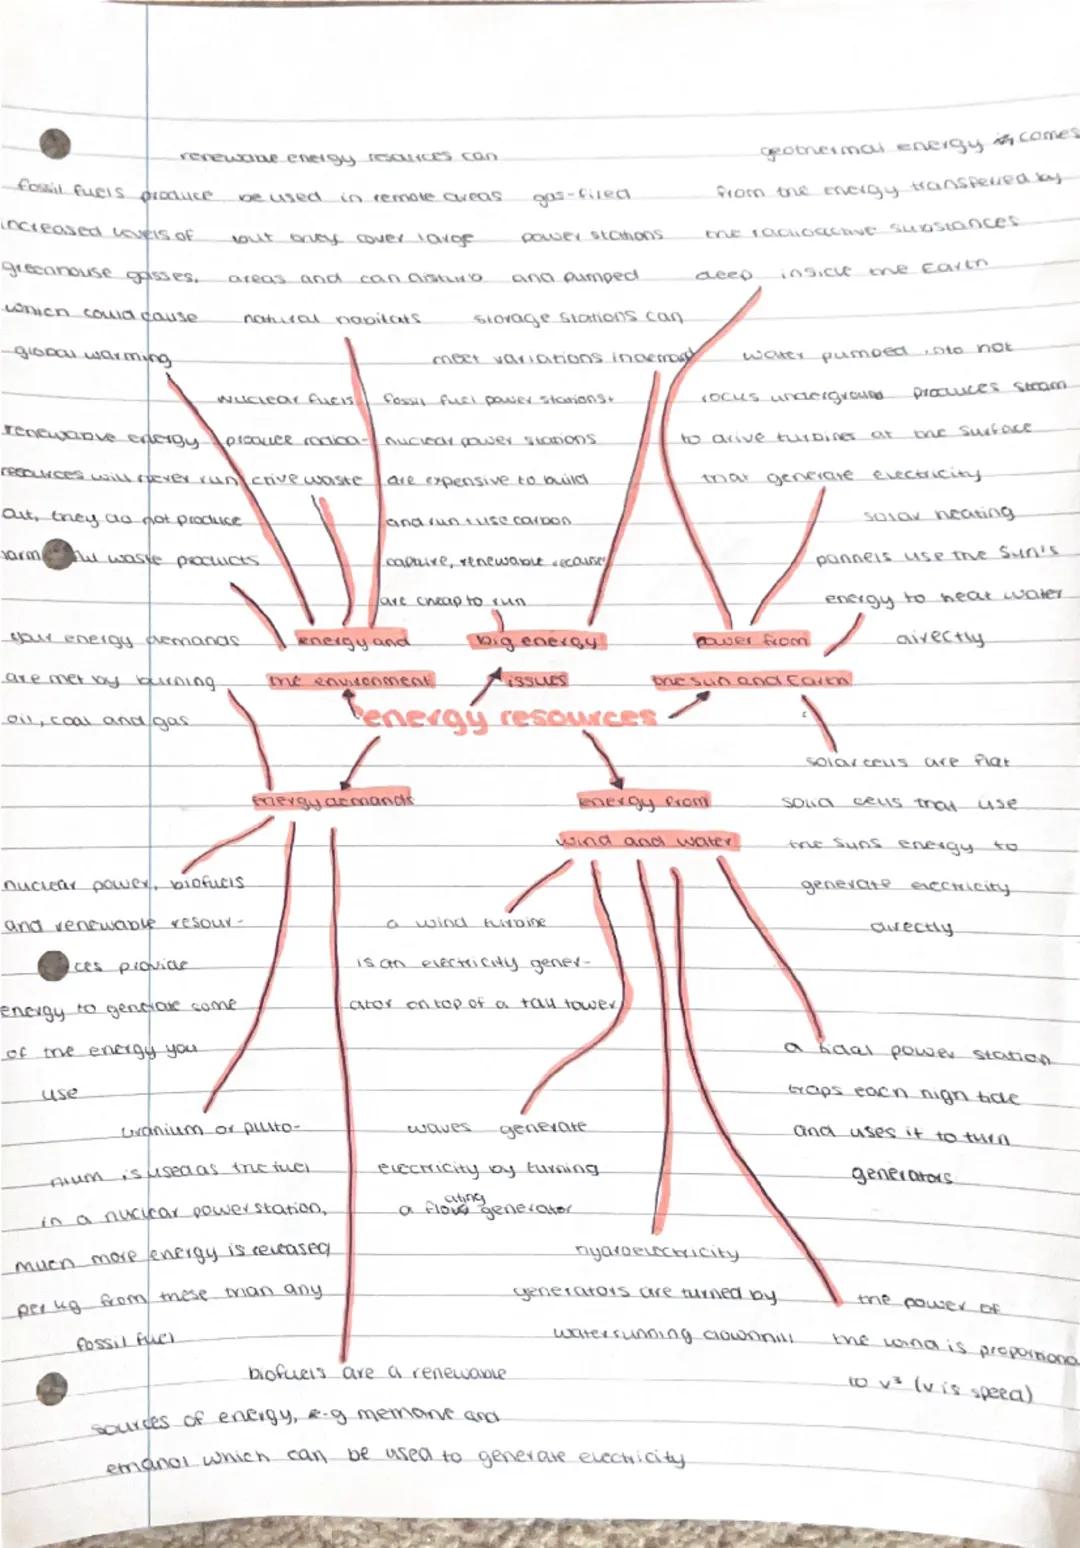 renewable energy resources can
be used in remote areas
but oney cover large
areas and can disturb
natural habitats
fossil fuels produce
increased levels of
greenhouse gasses,
which could cause
global warming
gas-fired
power stations
and pumped
storage stations can
meet variations in demand
geothermal energy comes
from the energy transferred by
the radioactive substances
deep inside the Earth
water pumped into hot
rocks underground produces steam
to drive turbines at the surface
that generate electricity
nuclear fuels
produce radioa-
ctive waste
fossil fuel power stations +
nuclear power stations
are expensive to build
and run + use carbon
capture, renewable
are cheap to run
renewable energy
resources will never run
out, they do not produce
harmful waste products
solar heating
pannels use the Sun's
energy to heat water
directly
your energy demands
are met by burning
oil, coal and gas
energy and
the environment
big energy
issues
power from
the sun and Earth
energy resources
energy demands
energy from
wind and water
solar cells are flat
solid cells that use
the suns energy to
generate electricity
directly
nuclear power, biofuels
and renewable resour-
ces provide
energy to generate some
of the energy you
use
a wind turbine
is an electricity gener-
ator on top of a tall tower
a tidal power station
traps each high tide
and uses it to turn
generators
uranium or pluto-
nium is used as the fuel
in a nuclear power station,
much more energy is released
per kg from these than any
fossil fuel
waves generate
electricity by turning
a floating generator
hydroelectricity
generators are turned by
water running downhill
the power of
the wind is proportional
to v³ (v is speed)
biofuels are a renewable
sources of energy, e.g methane and
ethanol which can be used to generate electricity